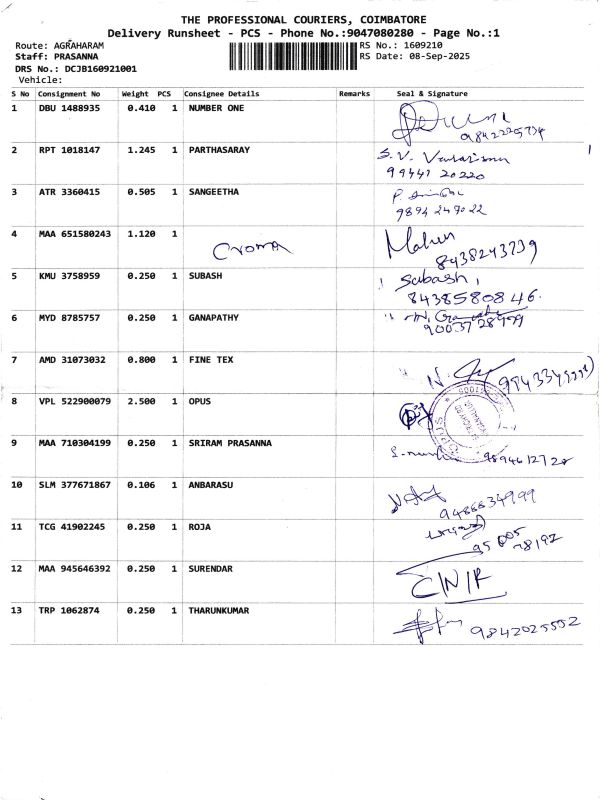 THE PROFESSIONAL COURIERS, COIMBATORE
Delivery Runsheet - PCS - Phone No.:9047080280 - Page No.:1
Route: AGRAHARAM RS No.: 1609210
Staff: PRASANNA RS Date: 08-Sep-2025
DRS No.: DCJB160921001
Vehicle:
S No Consignment No Weight PCS Consignee Details Remarks Seal & Signature
1 DBU 1488935 0.410 1 NUMBER ONE
2 RPT 1018147 1.245 1 PARTHASARAY S. V.
99441 20220
3 ATR 3360415 0.505 1 SANGEETHA P.
9894 249022
4 MAA 651580243 1.120 1 Croma
8438243739
5 KMU 3758959 0.250 1 SUBASH Subash
8438580846.
6 MYD 8785757 0.250 1 GANAPATHY
9003728999
7 AMD 31073032 0.800 1 FINE TEX N.
8 VPL 522900079 2.500 1 OPUS OPUS
9 MAA 710304199 0.250 1 SRIRAM PRASANNA
10 SLM 377671867 0.106 1 ANBARASU
9486634999
11 TCG 41902245 0.250 1 ROJA
12 MAA 945646392 0.250 1 SURENDAR
13 TRP 1062874 0.250 1 THARUNKUMAR 9842025552